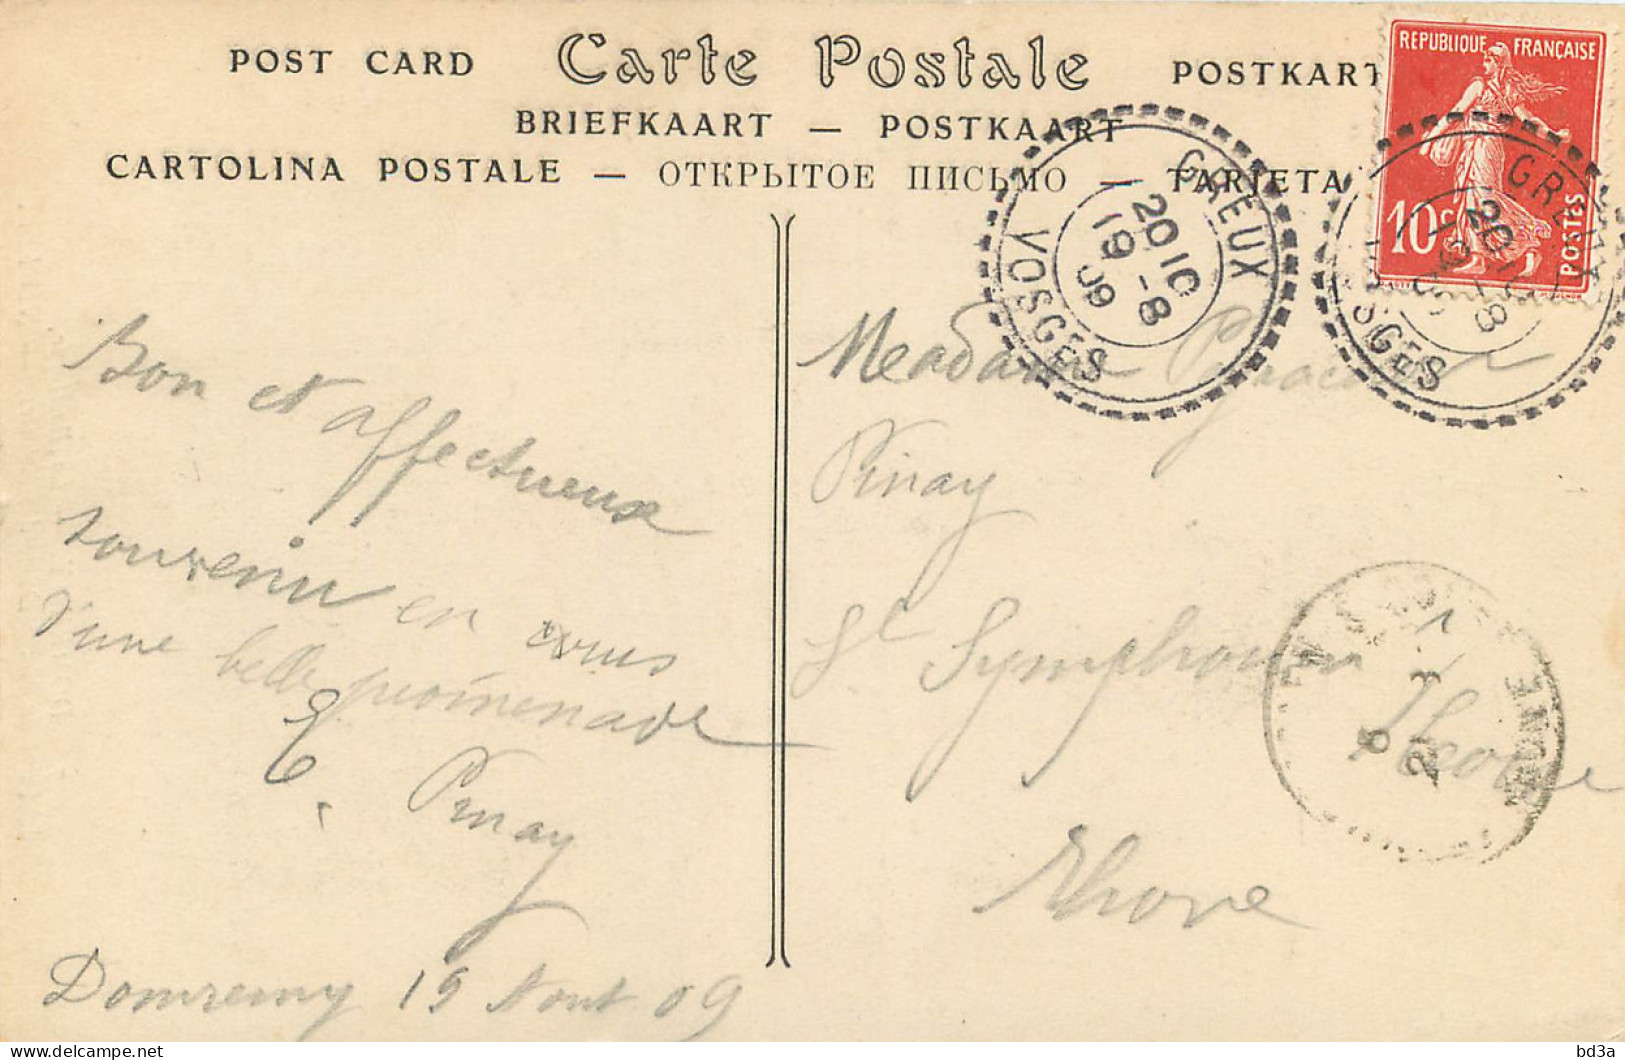 POST CARD Carte Postale POSTKART
BRIEFKAART — POSTKAART
CARTOLINA POSTALE — ОТКРЫТОЕ ПИСЬМО — TARJETA
REPUBLIQUE FRANÇAISE
10c POSTES
GREUX
20 10
19 -8
09
VOSGES
GREUX
20
19 -8
VOSGES
Bon et affectueux
souvenir en
d'une belle promenade
E. Pinay
Domremy 15 Aout 09
Madame
Pinay
St Symphorien
Rhone
RHONE
bd3a